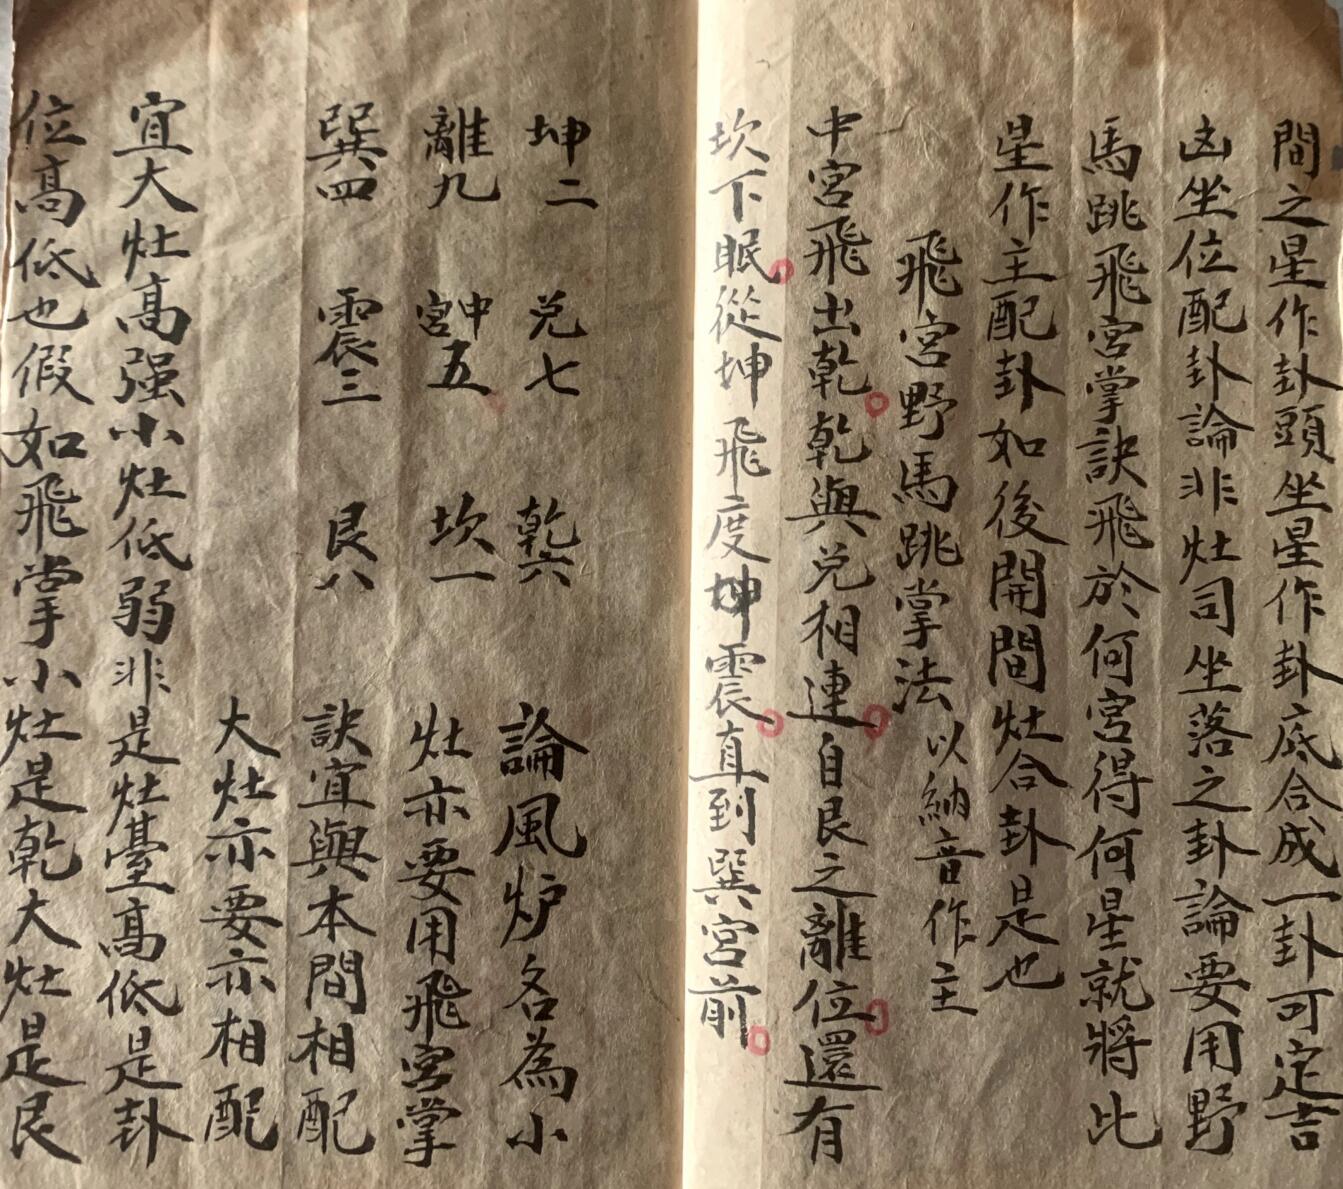 間之星作卦頭坐星作卦底合成一卦可定吉
凶坐位配卦論非灶司坐落之卦論要用野
馬跳飛宮掌訣飛於何宮得何星就將此
星作主配卦如後開間灶合卦是也
飛宮野馬跳掌法以納音作主
中宮飛出乾乾與兌相連自艮之離位還有
坎下眠從坤飛度坤震直到巽宮前
坤二 兌七 乾六 論風炉名為小
離九 中宮五 坎一 灶亦要用飛宮掌
巽四 震三 艮八 訣宜與本間相配
大灶亦要亦相配
宜大灶高强小灶低弱非是灶臺高低是卦
位高低也假如飛掌小灶是乾大灶是艮